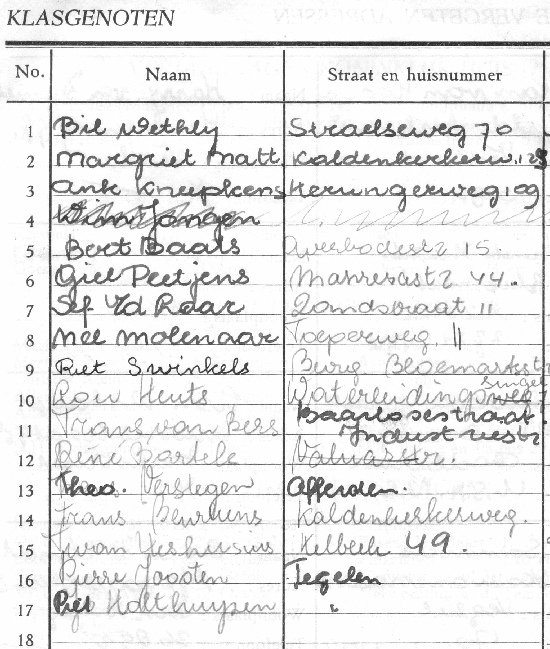 KLASGENOTEN
No. Naam Straat en huisnummer
1 Bil Wethly Straelseweg 70
2 Margriet Matt. Kaldenkerkerw. 125
3 Ank Kneepkens Herungerweg 109
4 Wim Jongen
5 Bert Baats Averbodestr 15.
6 Giel Peetjens Manresastr 44.
7 Sef vd Raar Zandstraat 11
8 Nel Molenaar Toeperweg. 11
9 Riet Swinkels Burg. Bloemarts str
10 Lou Heuts Waterleidingsweg singel
11 Frans van Bers Baarlosestraat.
Industriestr
12 René Bartels Valuasstr.
13 Theo. Verstegen Afferden.
14 Frans Beurskens Kaldenkerkerweg.
15 Iwan Veshusius Helbeek 49.
16 Pierre Joosten Tegelen
17 Piet Holthuysen "
18